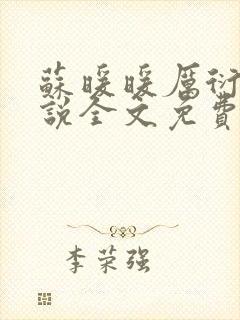 蘇暖暖厲衍
說全文免費
李荣强